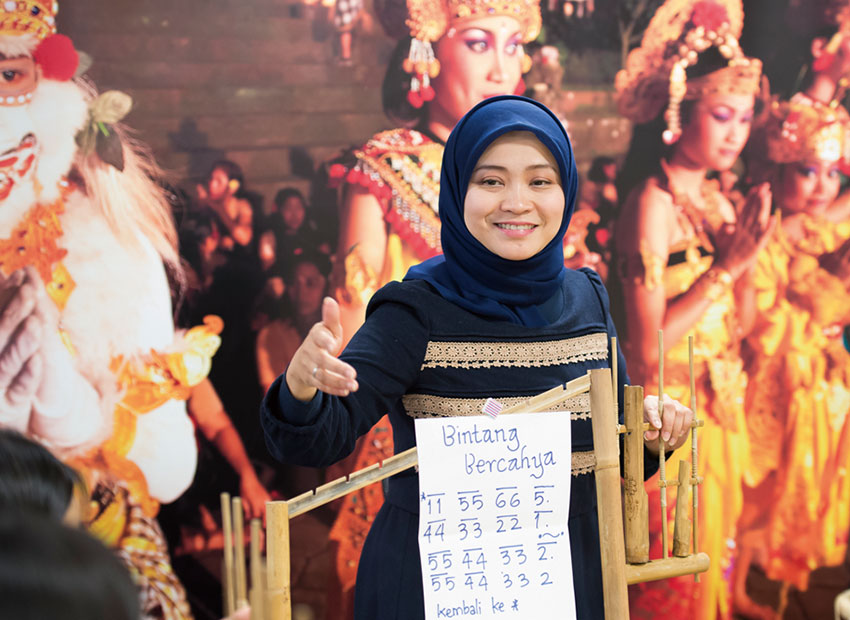 Bintang
Bercahya
* 11 55 66 5.
44 33 22 1.
55 44 33 2.
55 44 33 2
kembali ke *